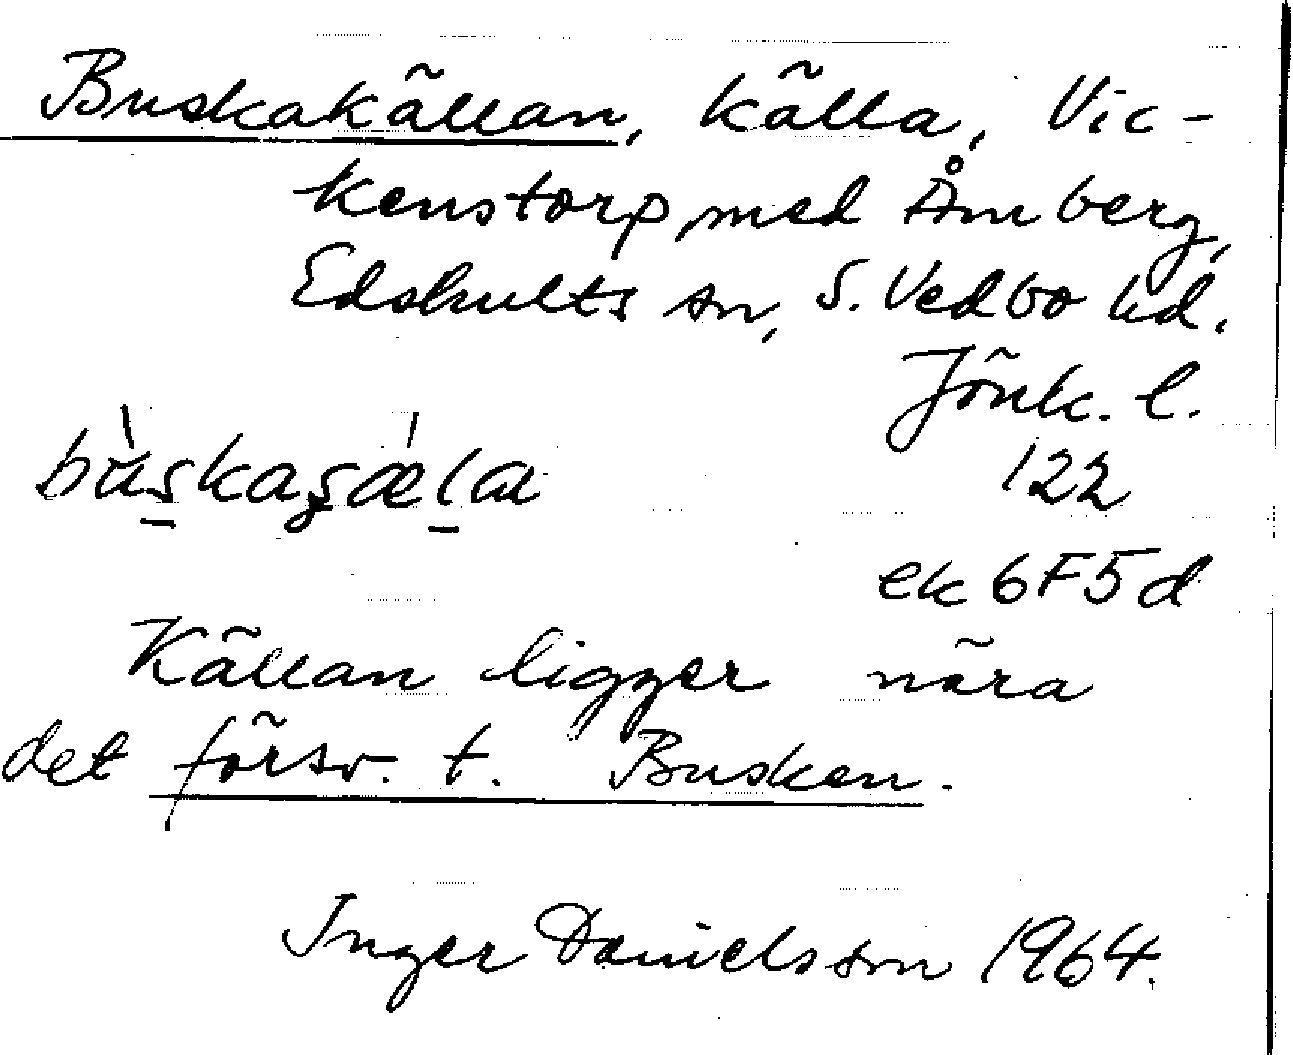 Buskakällan, källa, Vic-
kenstorp med Åmberg,
Edshults sn, S. Vedbo hd.
Jönk. l.
122
ek 6F5d
Källan ligger nära
det försv. t. Busken.
Inger Danielsson 1964.